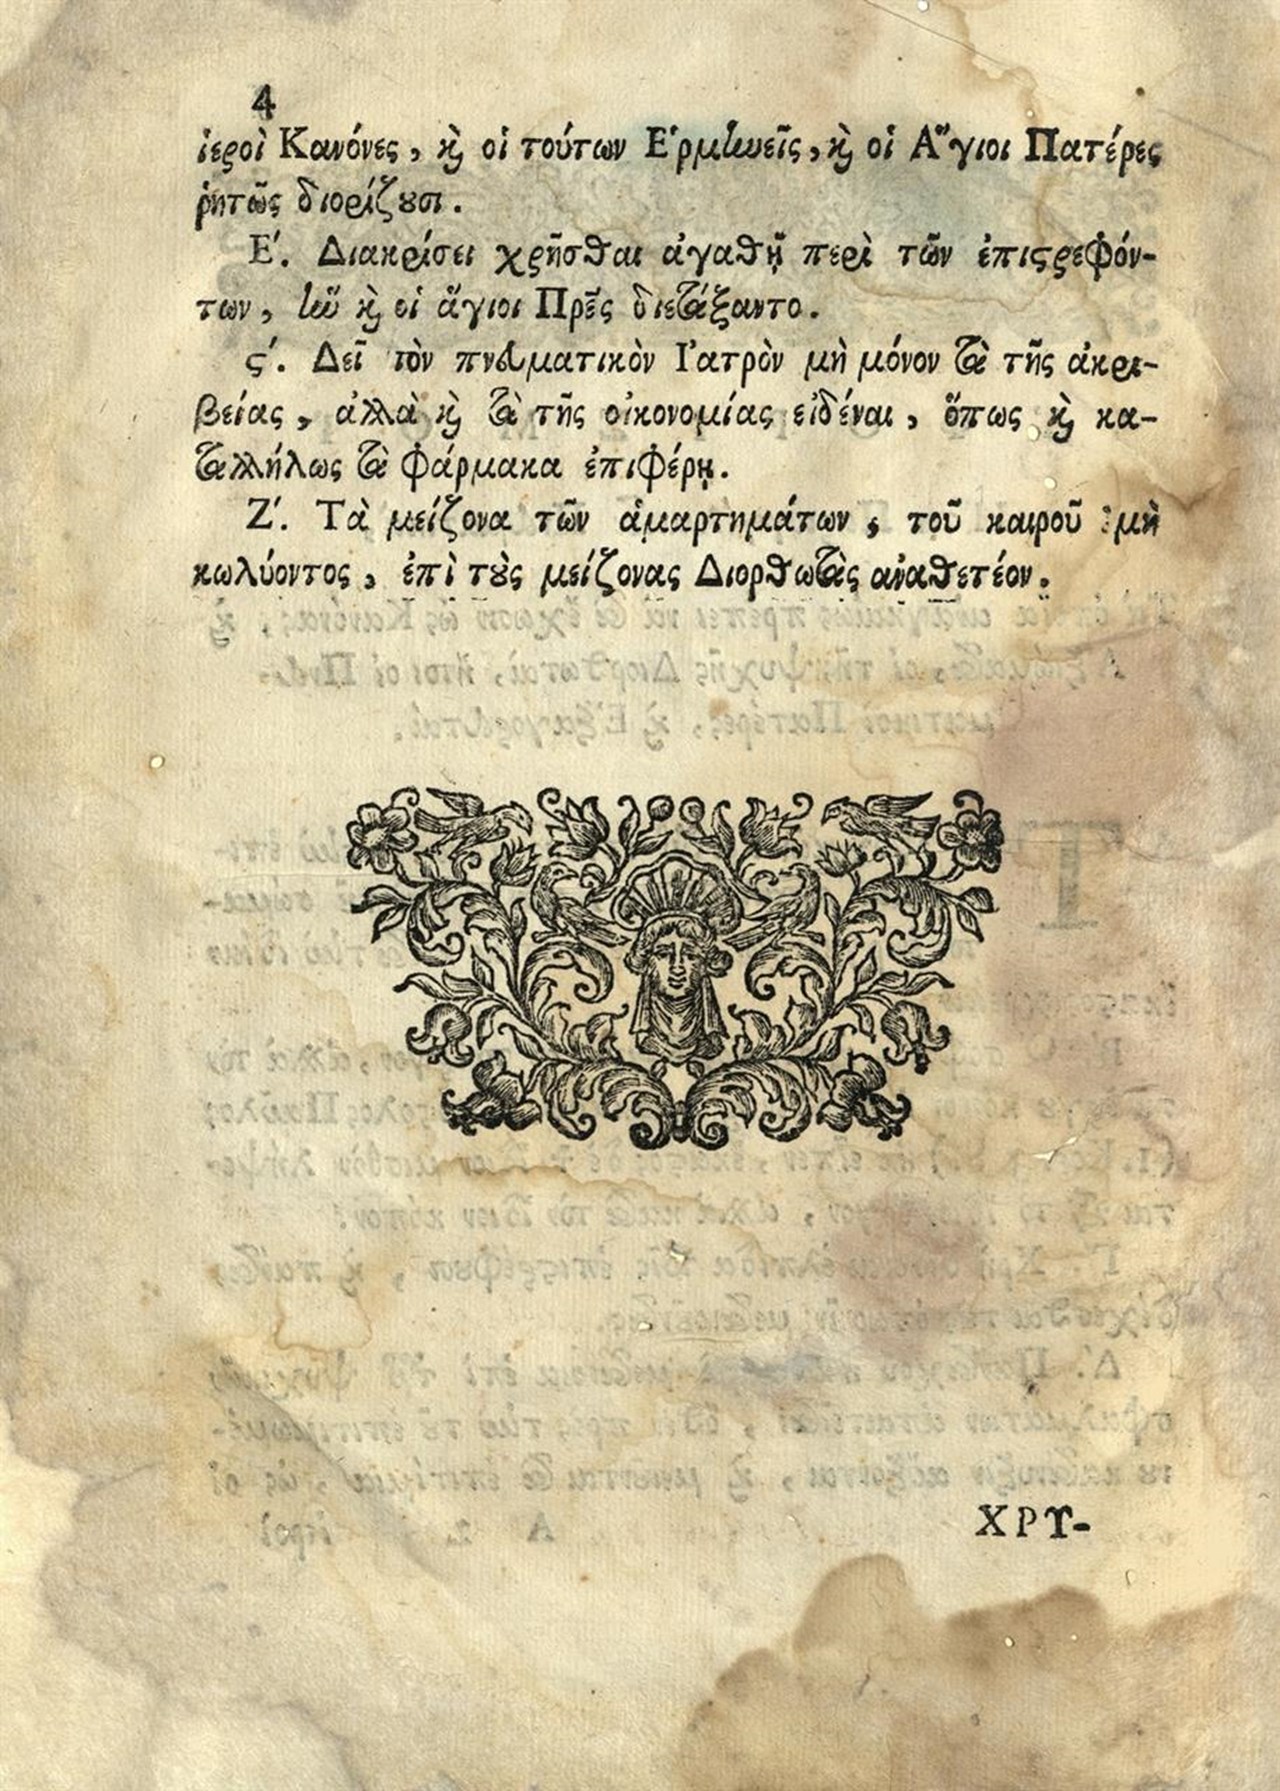 4
ἱεροὶ Κανόνες, ϗ οἱ τούτων Ἑρμηνεῖς, ϗ οἱ Ἅγιοι Πατέρες
ῥητῶς διορίζȣσι.
Ε΄. Διακρίσει χρῆσθαι ἀγαθῇ περὶ τῶν ἐπιϛρεφόν-
των, ἣν ϗ οἱ ἅγιοι Πρε͂ς διετάξαντο.
ϛ΄. Δεῖ τὸν πνευματικὸν Ἰατρὸν μὴ μόνον τὰ τῆς ἀκρι-
βείας, ἀλλὰ ϗ τὰ τῆς οἰκονομίας εἰδέναι, ὅπως ϗ κα-
ταλλήλως τὰ φάρμακα ἐπιφέρῃ.
Ζ΄. Τὰ μείζονα τῶν ἁμαρτημάτων, τοῦ καιροῦ μὴ
κωλύοντος, ἐπὶ τȣ̀ς μείζονας Διορθωτὰς ἀναθετέον.
ΧΡΥ-